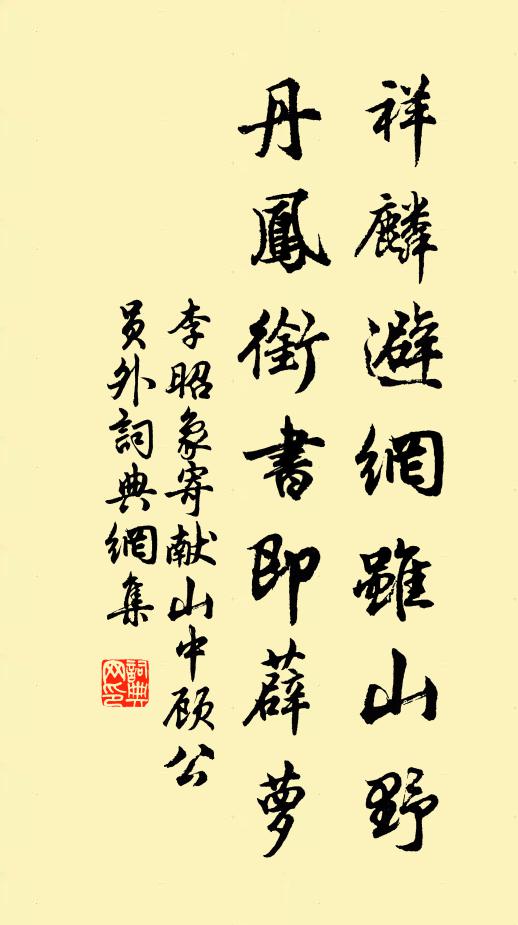 祥麟避網雖山野
丹鳳銜書即薜萝
李昭象寄献山中顾公
员外詞典網集
詞典
网印